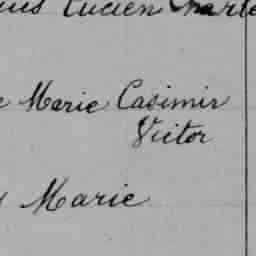 Lucien Charle
Marie Casimir
Victor
Marie